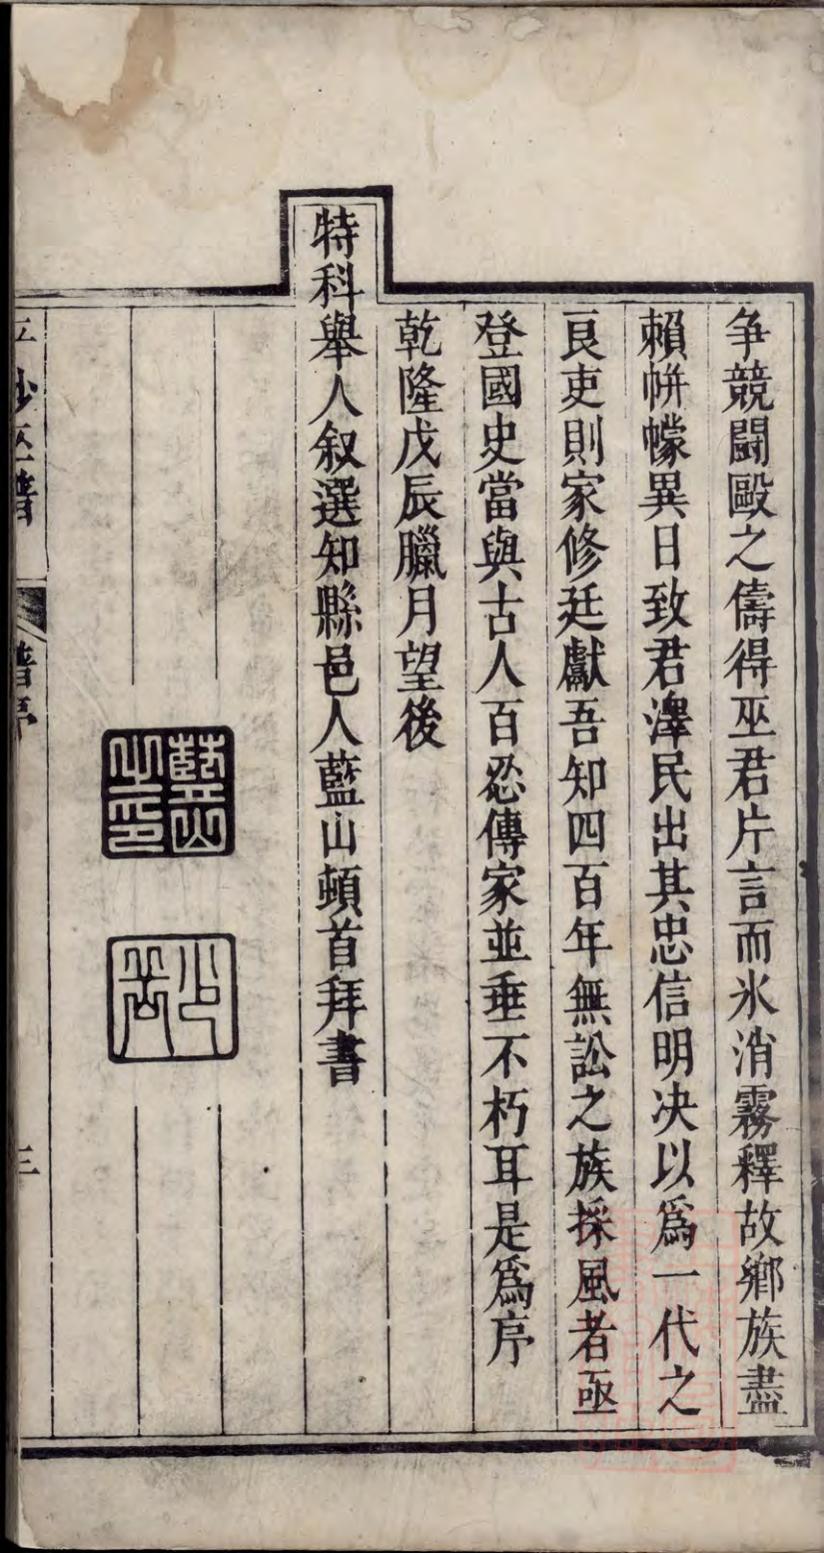 争競鬪毆之儔得巫君片言而氷消霧釋故鄉族盡
賴帡幪異日致君澤民出其忠信明决以爲一代之
良吏則家修廷獻吾知四百年無訟之族採風者亟
登國史當與古人百忍傳家並垂不朽耳是爲序
乾隆戊辰臘月望後
特科舉人叙選知縣邑人藍山頓首拜書
藍山之印
三